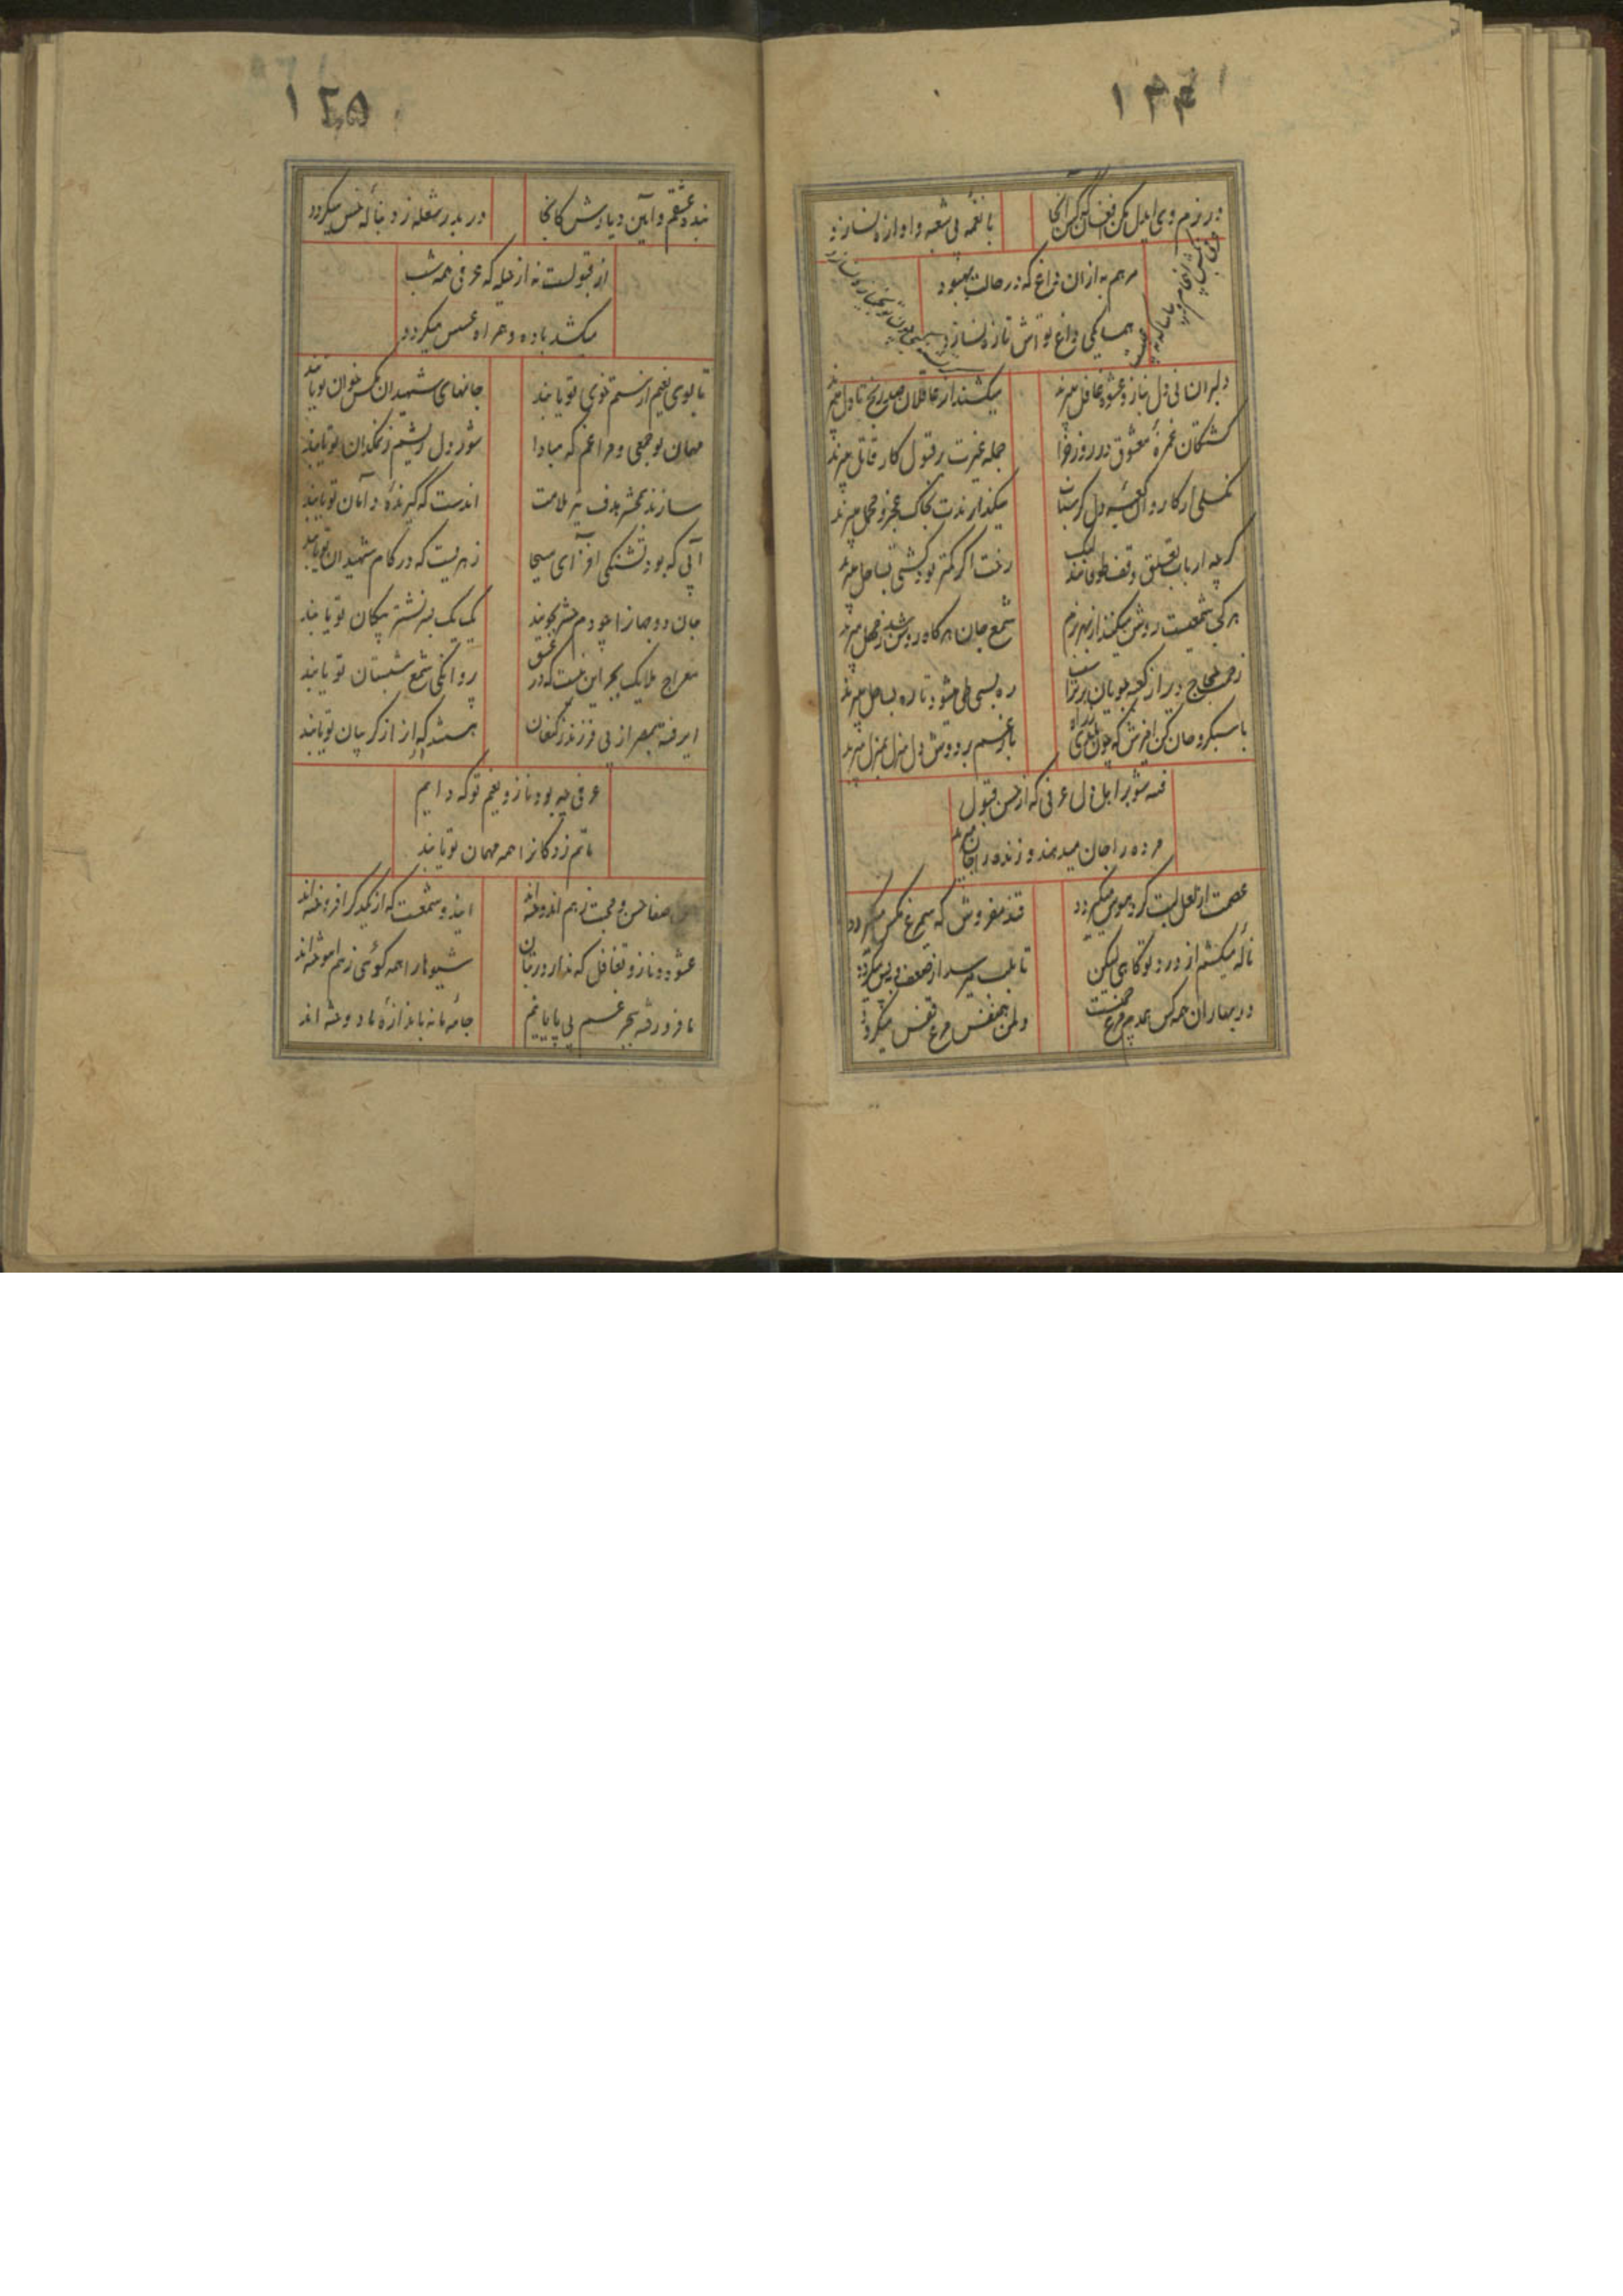 ۱۳۴
در بزم وی ایدل مکن افغان کس آنجا
با نغمه نی شعبه و آوازه نسازد
مرهم به ازان داغ که در حالت بهبود
همسایگی داغ تو اش تازه نسازد
دلبران نی دل بناز و عشوه غافل میبرند
میکشند از عاقلان صد رنج تا دل میبرند
کشتگان غمزهٔ معشوق در روز جزا
جمله غیرت بر قبول کار قاتل میبرند
میگذارندت بخاک عجز و محمل میبرند
گرچه ارباب تعلق وقف طوفانند لیک
رخت اگر کمتر بود کشتی بساحل میبرند
هر کجا شمعیست روشن میکنند از بهر بزم
شمع جان هرگاه روشن شد ز محفل میبرند
ره بسی طی میشود تا ره بساحل میبرند
با سبکروحان کن آمیزش که چون مانی ز راه
با غمم بر دوش دل منزل بمنزل میبرند
فتنه شو بر اهل دل عرفی که از حسن قبول
مرده را جان میدهند و زنده را جان میبرند
عصمت از لعل لبت گرد هوس میگردد
قند مفروش که سیمرغ مگس میگردد
ناله میکشم از درد تو گاهی لیکن
تا بلب میرسد از ضعف نفس میگردد
در بهاران همه کس همدم مرغ چمنست
دلم همنفس مرغ قفس میگردد
۱۳۵
بندهٔ عشقم و آیین دیارش کانجا
در بدر شعله ز دنبالهٔ خس میگردد
از قبولست نه از حیله که عرفی همه شب
میکشد باده و همراه عسس میگردد
تا بوی نعیم از ستم خوی تو یابند
جانهای شهیدان مگس خوان تو یابند
مهمان تو جمعی و مرا غم که مبادا
شور دل ریشم ز نمکدان تو یابند
سازند بمحشر هدف تیر ملامت
آندست که گیرندهٔ دامان تو یابند
آبی که بود تشنگی افزای مسیحا
زهریست که در کام شهیدان تو یابند
جان دو جهان را چو دم حشر بجویند
یک یک بسر نشتر پیکان تو یابند
معراج ملایک بجز این نیست که در عشق
پروانگی شمع شبستان تو یابند
ای رفته بمصر از پی فرزند ز کنعان
هستند که از گریبان تو یابند
عرفی چه بود ناز و نعیم تو که دایم
ماتم زدگانرا همه مهمان تو یابند
صفا حسن و محبت ز هم اندوخته‌اند
این دو شمعست که از یکدگر افروخته‌اند
عشوه و ناز و تغافل که ندارد در بتان
شیوها را همه گوئی ز هم آموخته‌اند
ما فرو رفته بحر غم بی پایانیم
جامهٔ ما نه باندازهٔ ما دوخته‌اند